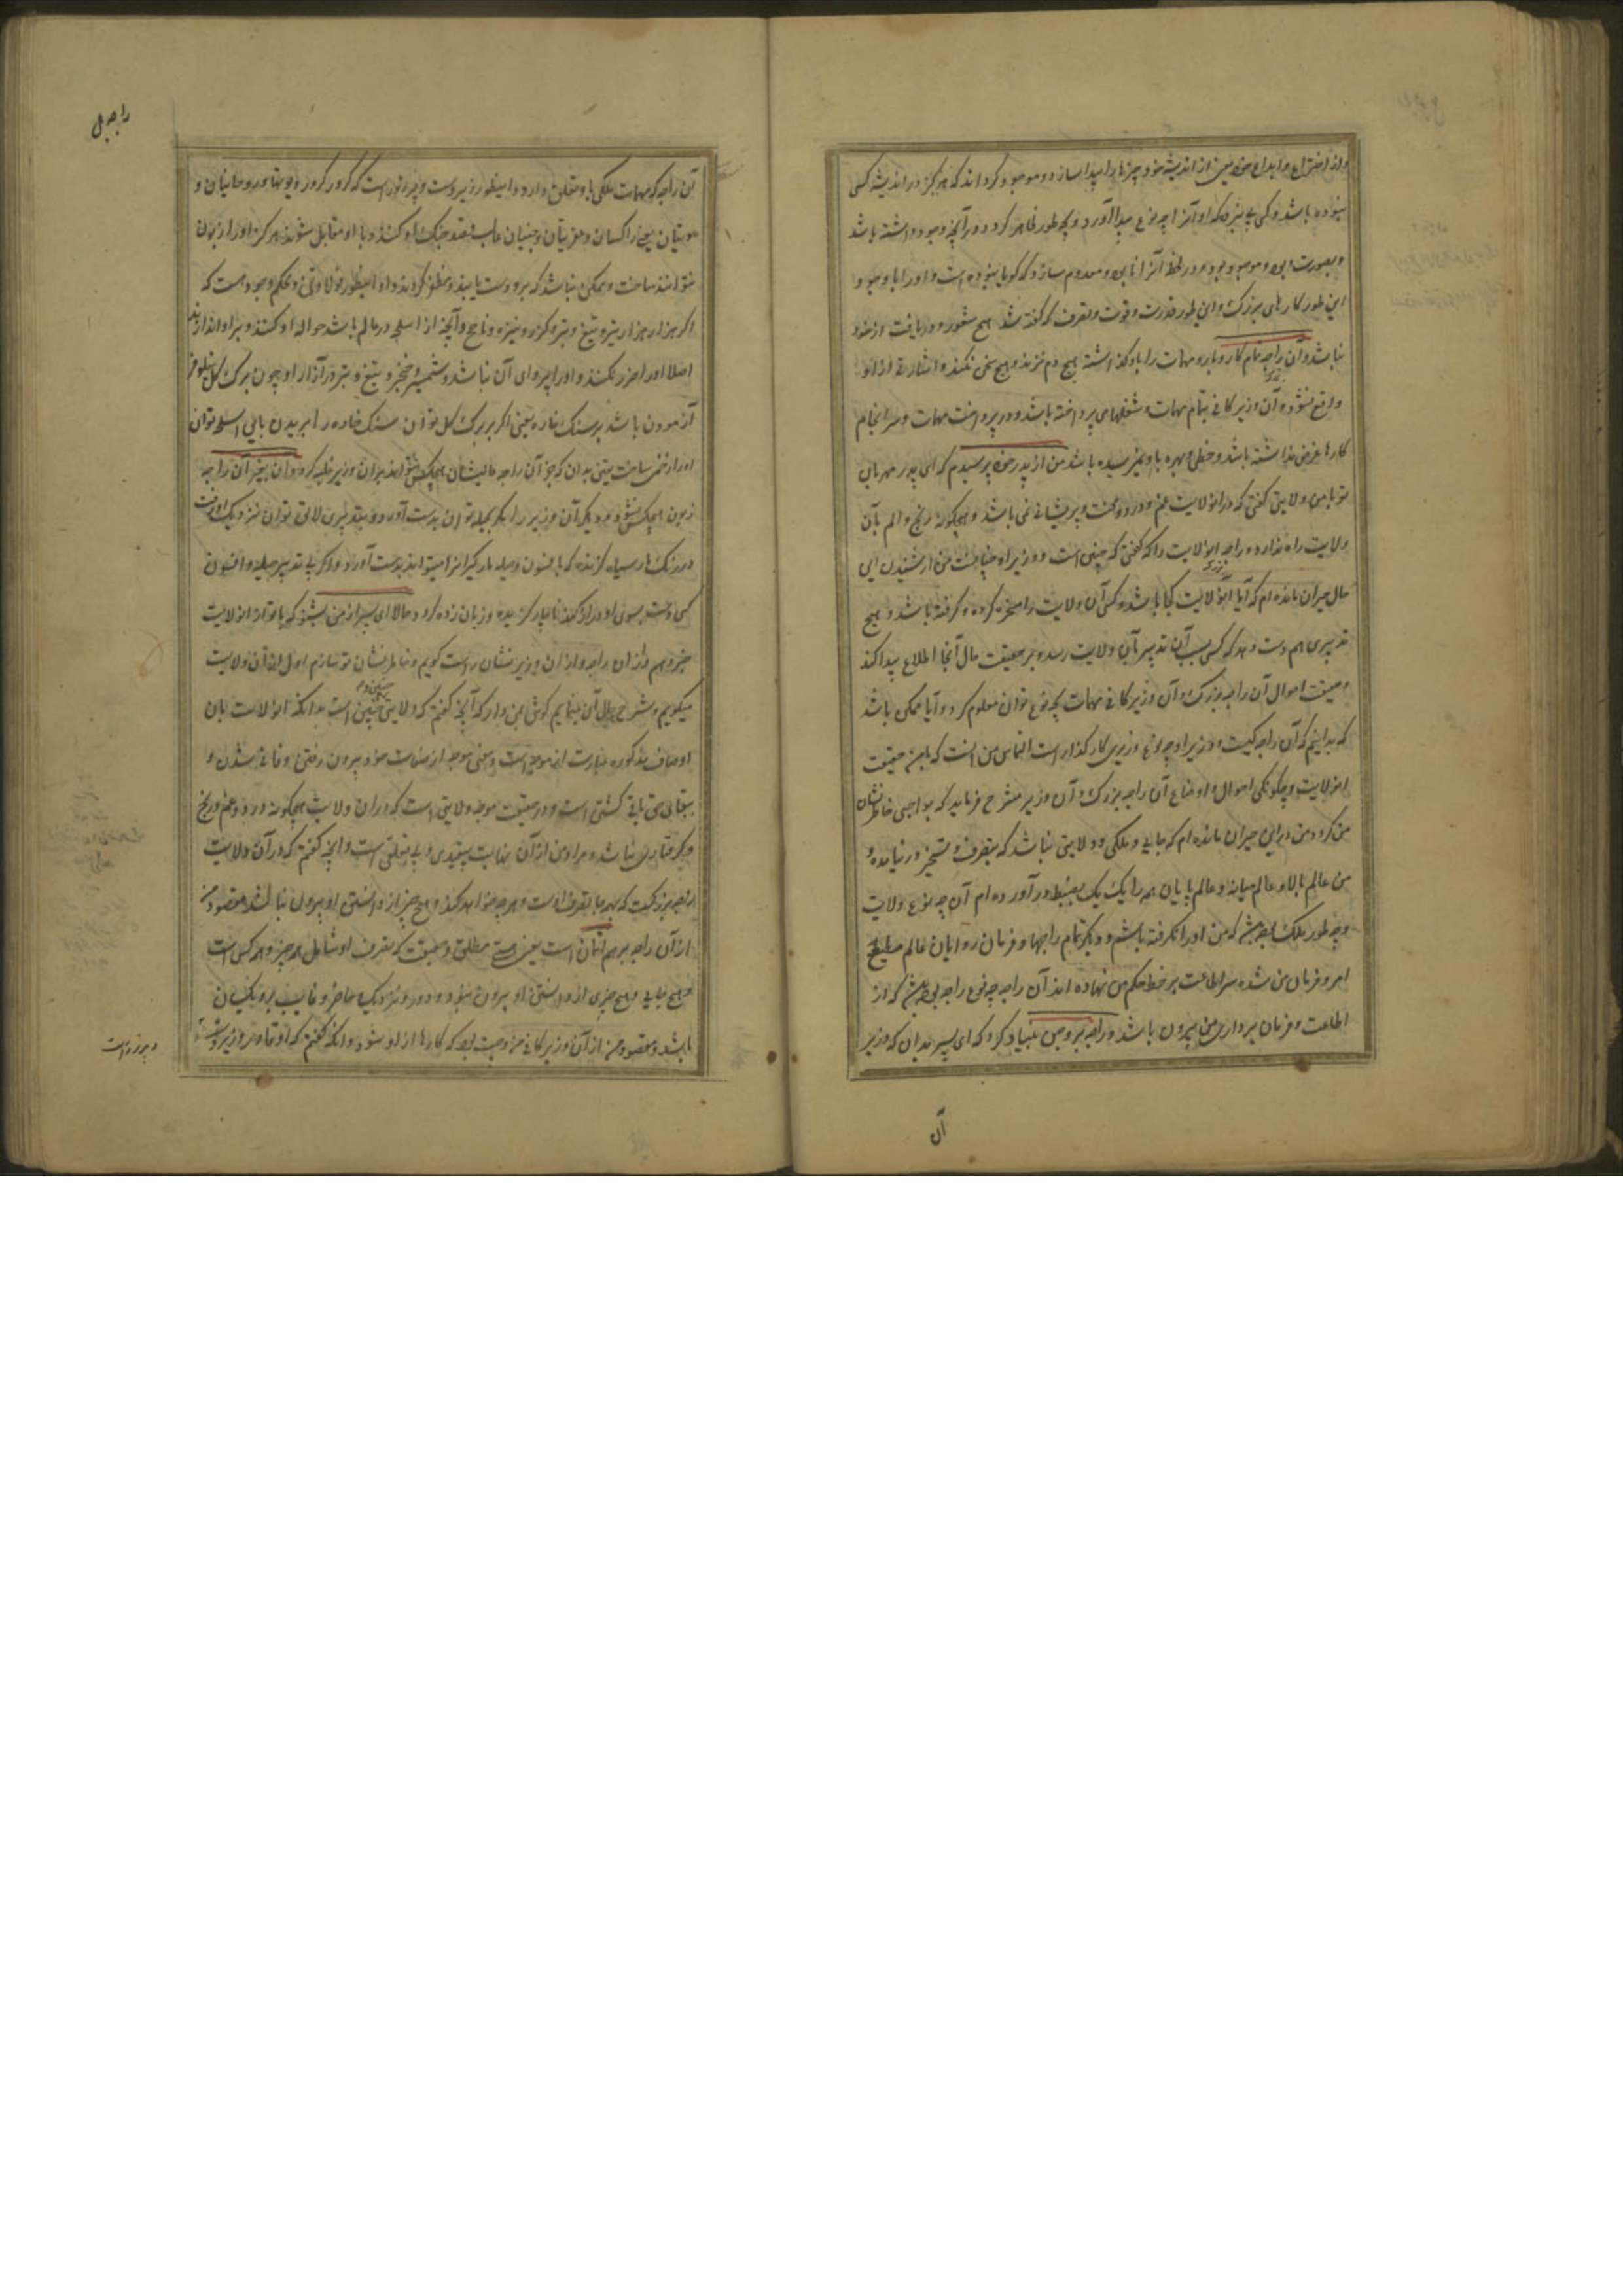 و از اختراع و ابداع خود یعنی از اندیشه خود چیزها را پیدا سازد و موجود گرداند که هرگز در اندیشه کسی
نبوده باشد و کسی پی نبرد که او آنرا چه نوع پیدا آورد و چه طور ظاهر کرد و هر آنچه وجود داشته باشد
و بصورت وی و موجود بود در لحظه آنرا نابود و معدوم سازد که گویا نبوده است و او را با وجود
این طور کارهای بزرگ و این طور قدرت و قوت و تصرف که گفته شد هیچ شعور و دریافت از خود
نباشد و آن راجه تمام کار و بار و مهمات را باو گذاشته هیچ دم نزند و هیچ سخن نکند و اشارتی از او
واقع نشود و آن وزیر کافی بتمام مهمات و شغلهای پرداخته باشد و در پرداخت مهمات و سرانجام
کارها غرض نداشته باشد و حظی و بهره باو نمیرسیده باشد من از پدر خود پرسیدم که ای پدر مهربان
تو بامن ولایتی گفتی که در انولایت غم و درد و محنت و پریشانی نمی باشد و هیچگونه رنج و الم بآن
ولایت راه ندارد و راجه انولایت را که گفتی که چنین است و وزیر او چنانست من از شنیدن این
حال حیران مانده ام که آیا آنولایت کجا باشد و کسی آن ولایت را مسخر کرده و گرفته باشد و هیچ
تدبیری هم دست دهد که کسی بسبب آن تدبیر بآن ولایت رسد و بر حقیقت حال آنجا اطلاع پیدا کند
و حقیقت احوال آن راجه بزرگ و آن وزیر کافی مهمات چه نوع توان معلوم کرد و آیا ممکن باشد
که بدانیم که آن راجه کیست و وزیر او چه نوع وزیری کارگذار است التماس من آنست که بامن حقیقت
انولایت و چگونگی احوال و اوضاع آن راجه بزرگ و آن وزیر مشرح فرمایید که بواجبی خاطرنشان
من گردد من درین حیران مانده ام که جایی و ملکی و ولایتی نباشد که بتصرف و تسخیر در نیامده و
من عالم بالا و عالم میانه و عالم پایان همه را یک یک بضبط در آورده ام آن چه نوع ولایت
و چه طور ملک باشد که من او را نگرفته باشم و دیگر تمام راجها و فرمان روایان عالم مطیع
امر و فرمان من شده سر اطاعت بر خط حکم من نهاده اند آن راجه چه نوع راجه بوده باشد که از
اطاعت و فرمان برداری من بیرون باشد و راجه بروچن بنیاد کرد که ای پسر بدان که وزیر
آن
راجه بل
آن راجه که مهمات ملکی باو تعلق دارد و اینطور وزیر دست و پر زور است که کرور کرور دیوتها و روحانیان و
دیتیان یعنی راکسان و عفریتان و جنیان غالب بقصد جنگ او کنند و با او مقابل شوند هرگز او را زبون
نتوانند ساخت و ممکن نباشد که برو دست یابند و مظفر گردند و او اینطور فولاد تن و محکم وجود است که
اگر هزار هزار تیر و تیغ و تبر و گرز و نیزه و ناچخ و آنچه از اسلحه در عالم باشد حواله او کنند و بر او اندازند
اصلا او را ضرر نکند و او را پروای آن نباشد و شمشیر و خنجر و تیغ و تبر در آزار او چون برگ گل نیلوفر
آزمودن باشد بر سنگ خاره یعنی اگر ببرگ گل توان سنگ خاره را بریدن باین اسلحه توان
او را زخمی ساخت یقین بدان که جز آن راجه عالیشان هیچکس نتواند بر آن وزیر غلبه کرد و آن بغیر آن راجه
زبون هیچکس نشود و دیگر آن وزیر را مگر بحیله توان بدست آورد و بتدبیری لائق توان نزدیک او رفت
در رنگ مار سیاه گزنده که بافسون و حیله مارگیر از امید اند بدست آورد و اگر بی تدبیر حیله و افسون
کسی دست بسوی او دراز کند ناچار گزیده و زیان زده گردد حالا ای پسر از من بشنو که با تو از انولایت
خبر دهم و از آن راجه و از آن وزیر نشان راست گویم و خاطرنشان تو سازم اول از آن ولایت
میگویم و شرح حال آن مینمایم گوش بمن دار که آنچه گفتم که ولایتی چنین است بدانکه انولایت بان
اوصاف مذکوره عبارت از موجه است و معنی موجه از صفات خود بیرون رفتن و فانی شدن و
ببقای حق باقی گشتن است و در حقیقت موجه ولایتی است که در ان ولایت هیچگونه درد و غم و رنج
و گرفتاری نباشد و مراد من از آن نهایت بیقیدی و بی تعلقی است و آنچه گفتم که در آن ولایت
راجه بزرگیست که همه جا بتصرف اوست و هر چه خواهد کند و هیچ چیز از دانستن او بیرون نباشد مقصود من
از آن راجه برهم اتمان است یعنی هستی مطلق و حقیقت که تصرف او شامل همه چیز و همه کس است
و هیچ جایی و هیچ چیزی از دانستن او بیرون نبود و دور و نزدیک و حاضر و غایب برو یکسان
باشد و مقصود من از آن وزیر کافی خرد من است که کارها از او شود و آنکه گفتم که او تمام وزیر دست
و پر زور است